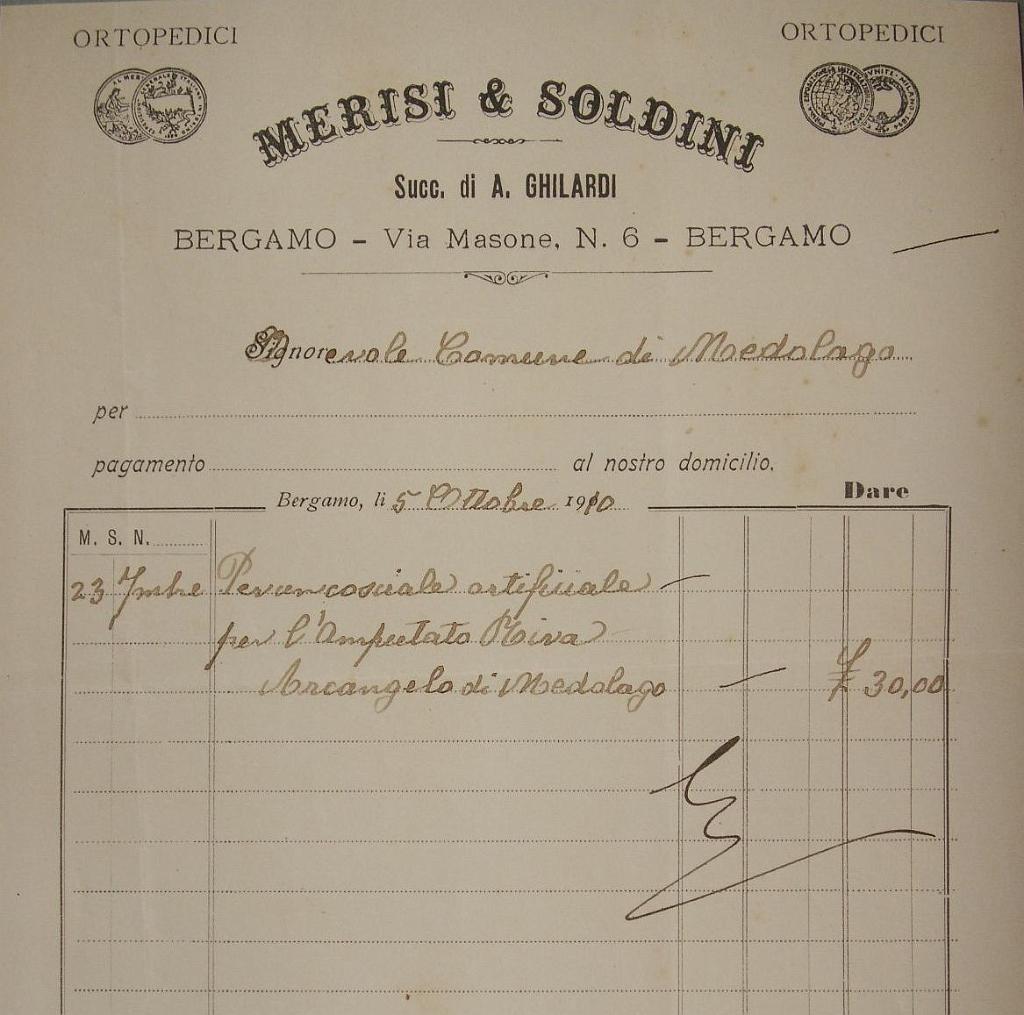 ORTOPEDICI
ORTOPEDICI
MERISI & SOLDINI
Succ. di A. GHILARDI
BERGAMO – Via Masone, N. 6 – BERGAMO
Onorevole Comune di Medolago
per
pagamento al nostro domicilio.
Bergamo, li 5 Ottobre 1910
Dare
M. S. N.
23 7mbre Per un cosciale artificiale
per l'Amputato Riva
Arcangelo di Medolago £ 30,00